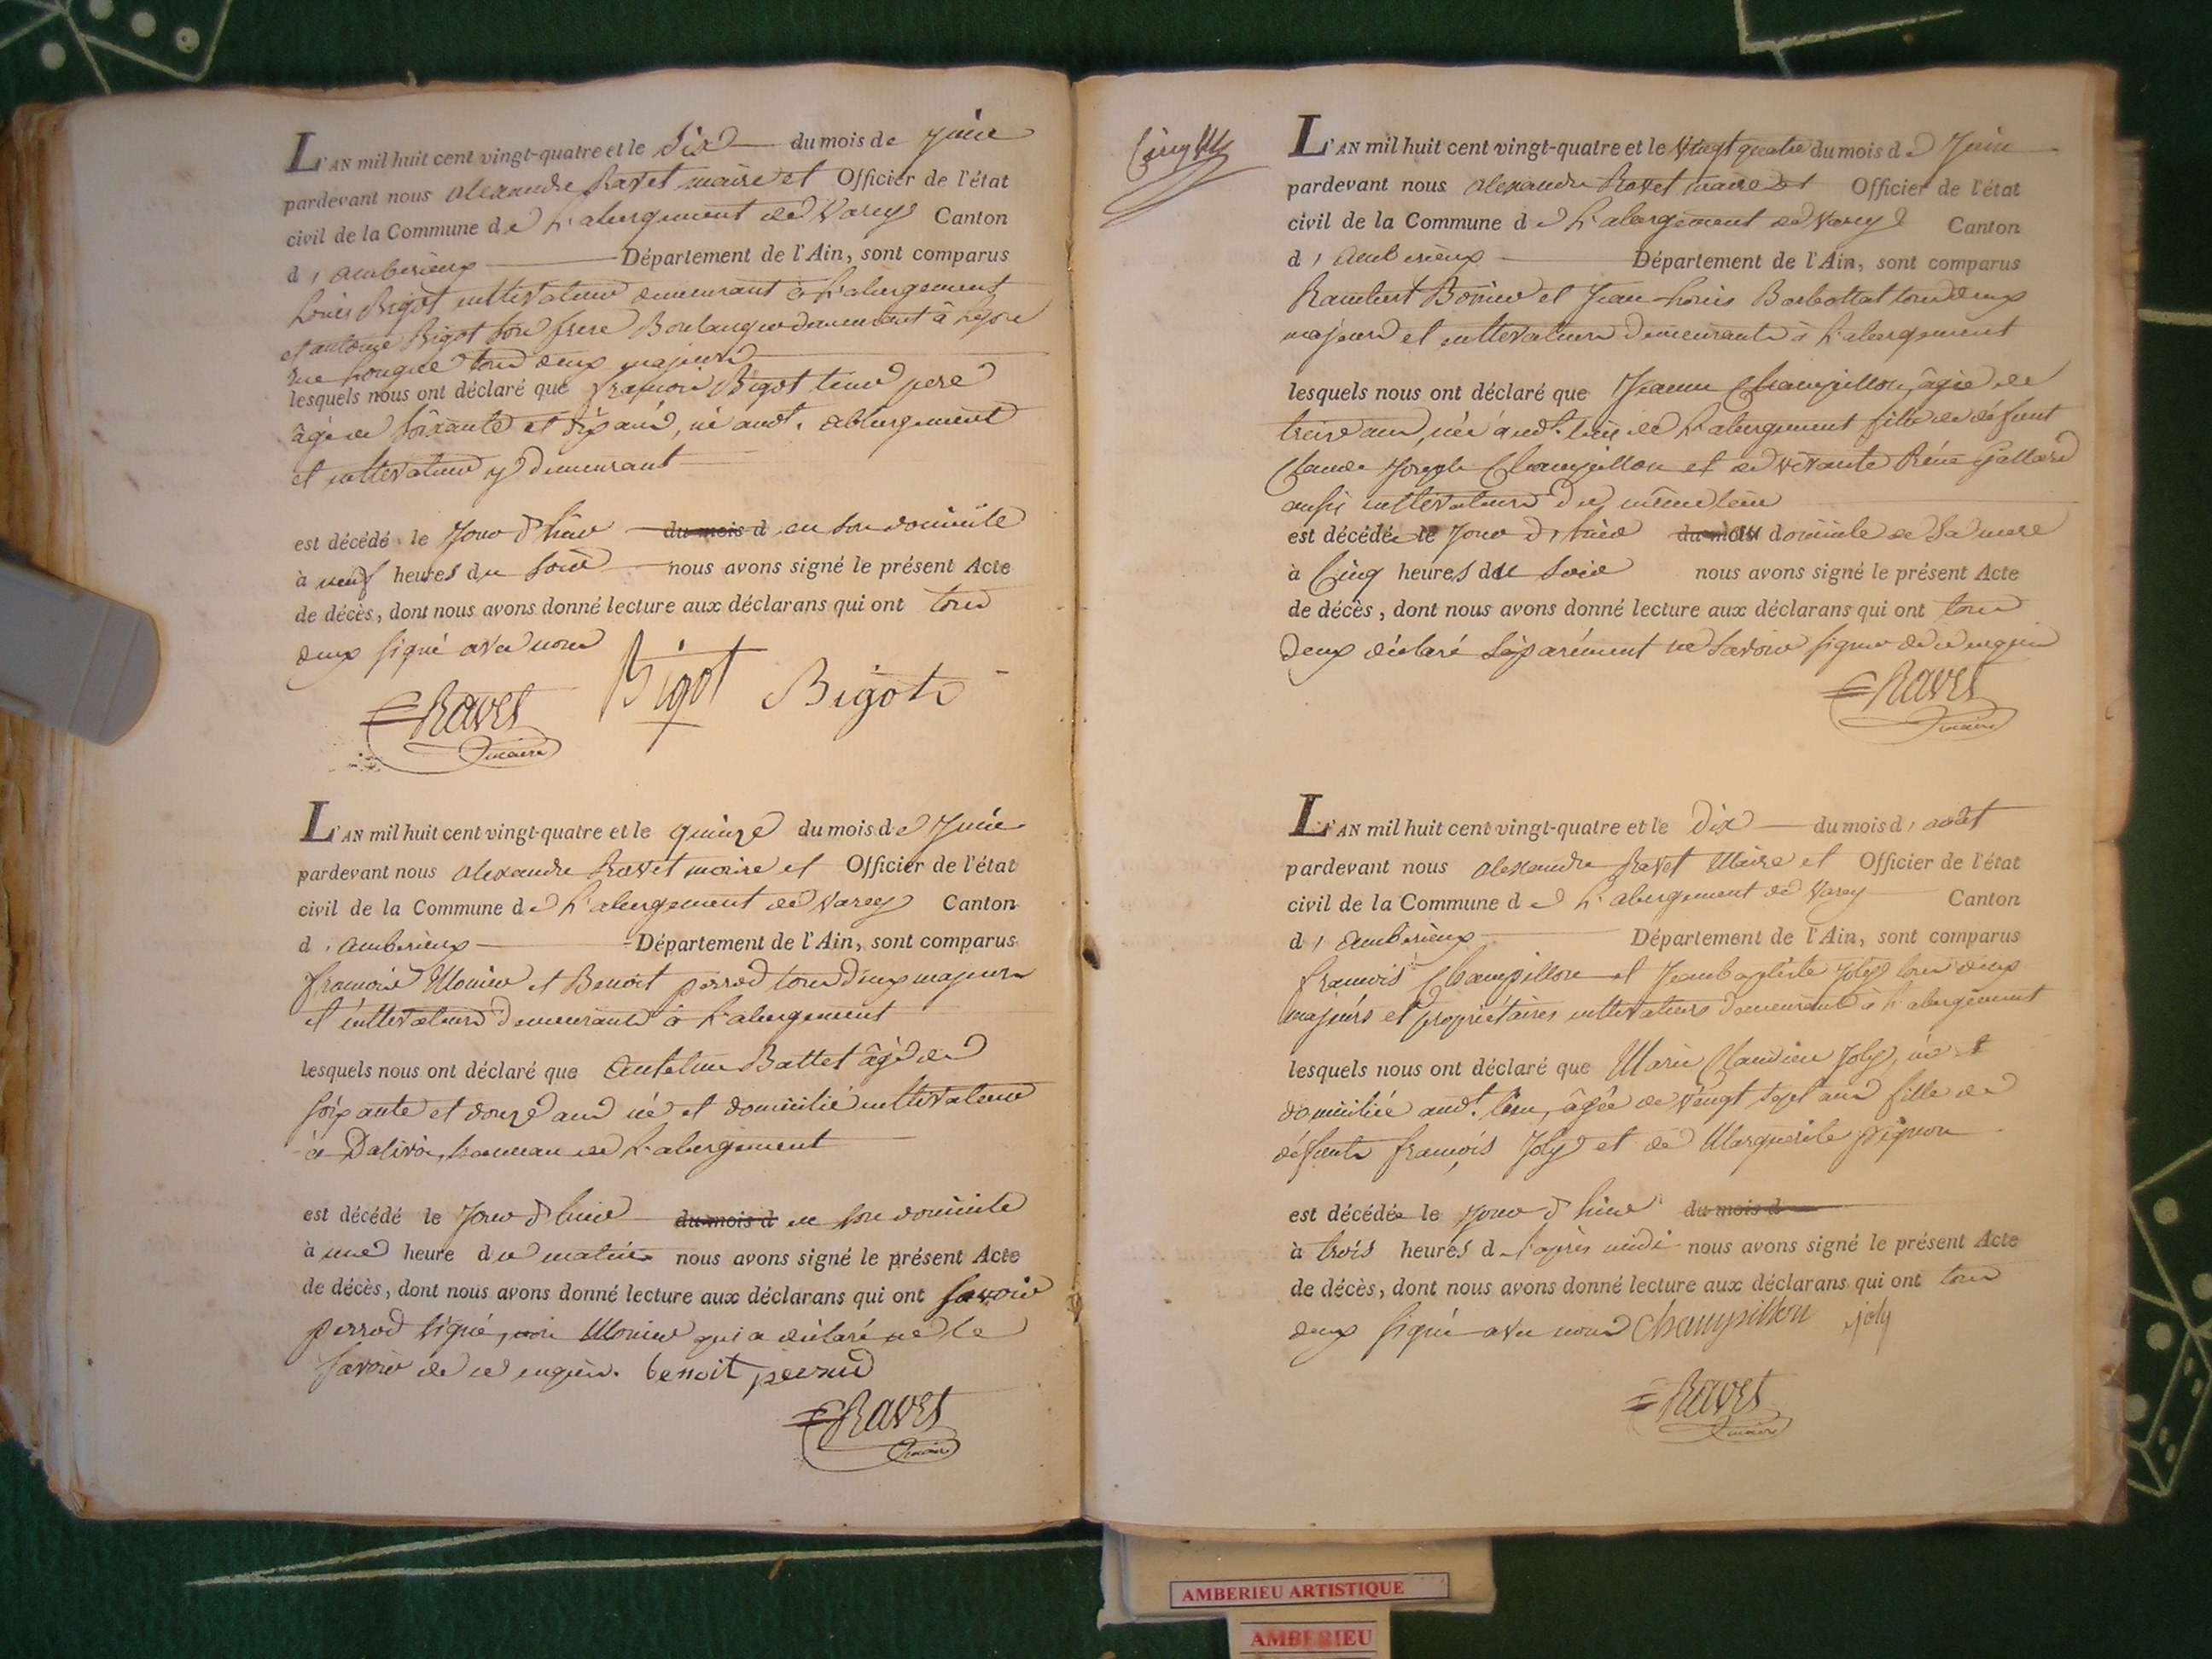 L'AN mil huit cent vingt-quatre et le Dix du mois de Juin
pardevant nous alexandre Ravet maire et Officier de l'état
civil de la Commune de L'abergement de Varey Canton
d'ambérieux Département de l'Ain, sont comparus
Louis Bigot cultivateur demeurant à L'abergement
et antoine Bigot son frere Boulanger demeurant à Lyon
rue Longue tous deux majeurs
lesquels nous ont déclaré que françois Bigot leur pere
âgé de soixante et dix ans, né audt. abbergement
et cultivateur y demeurant
est décédé le Jour d'hier du mois d en son domicile
à neuf heures du soir nous avons signé le présent Acte
de décès, dont nous avons donné lecture aux déclarans qui ont tous
deux signé avec nous
Ravet Bigot Bigot
maire
L'AN mil huit cent vingt-quatre et le quinze du mois de Juin
pardevant nous alexandre Ravet maire et Officier de l'état
civil de la Commune de L'abergement de Varey Canton
d'ambérieux Département de l'Ain, sont comparus
françois Monier et Benoit perrod tous deux majeurs
et cultivateurs demeurants à L'abergement
lesquels nous ont déclaré que antelme Battet âgé de
soixante et douze ans né et domicilié cultivateur
à Dalivoi, hameau de L'abergement
est décédé le Jour d'hier du mois d en son domicile
à une heure du matin nous avons signé le présent Acte
de décès, dont nous avons donné lecture aux déclarans qui ont savoir
perrod signé, Monier qui a déclaré ne le
savoir de ce enquis. benoit perrod
Ravet
maire
L'AN mil huit cent vingt-quatre et le vingt quatre du mois de Juin
pardevant nous alexandre Ravet maire et Officier de l'état
civil de la Commune de L'abergement de Varey Canton
d'ambérieux Département de l'Ain, sont comparus
Rambert Bonier et Jean Louis Barbottat tous deux
majeurs et cultivateurs demeurants à L'abergement
lesquels nous ont déclaré que Jeanne Champillon, âgée de
treize ans, née audt. lieu de L'abergement fille de défunt
Claude Joseph Champillon et de vivante Réné Gallard
aussi cultivateurs du même lieu
est décédée le Jour d'hier du mois au domicile de sa mere
à Cinq heures du soir nous avons signé le présent Acte
de décès, dont nous avons donné lecture aux déclarans qui ont tous
deux déclaré séparément ne savoir signer de ce enquis
Ravet
maire
L'AN mil huit cent vingt-quatre et le Dix du mois d'août
pardevant nous alexandre Ravet Maire et Officier de l'état
civil de la Commune de L'abergement de Varey Canton
d'ambérieux Département de l'Ain, sont comparus
françois Champillon et Jean baptiste Joly tous deux
majeurs et propriétaires cultivateurs demeurants à L'abergement
lesquels nous ont déclaré que Marie Claudine Joly, née et
domiciliée audt. lieu, âgée de vingt sept ans fille de
défunts françois Joly et de Marguerite pignon
est décédée le Jour d'hier du mois d
à trois heures de l'après midi nous avons signé le présent Acte
de décès, dont nous avons donné lecture aux déclarans qui ont tous
deux signé avec nous Champillon joly
Ravet
maire
AMBERIEU ARTISTIQUE
AMBERIEU